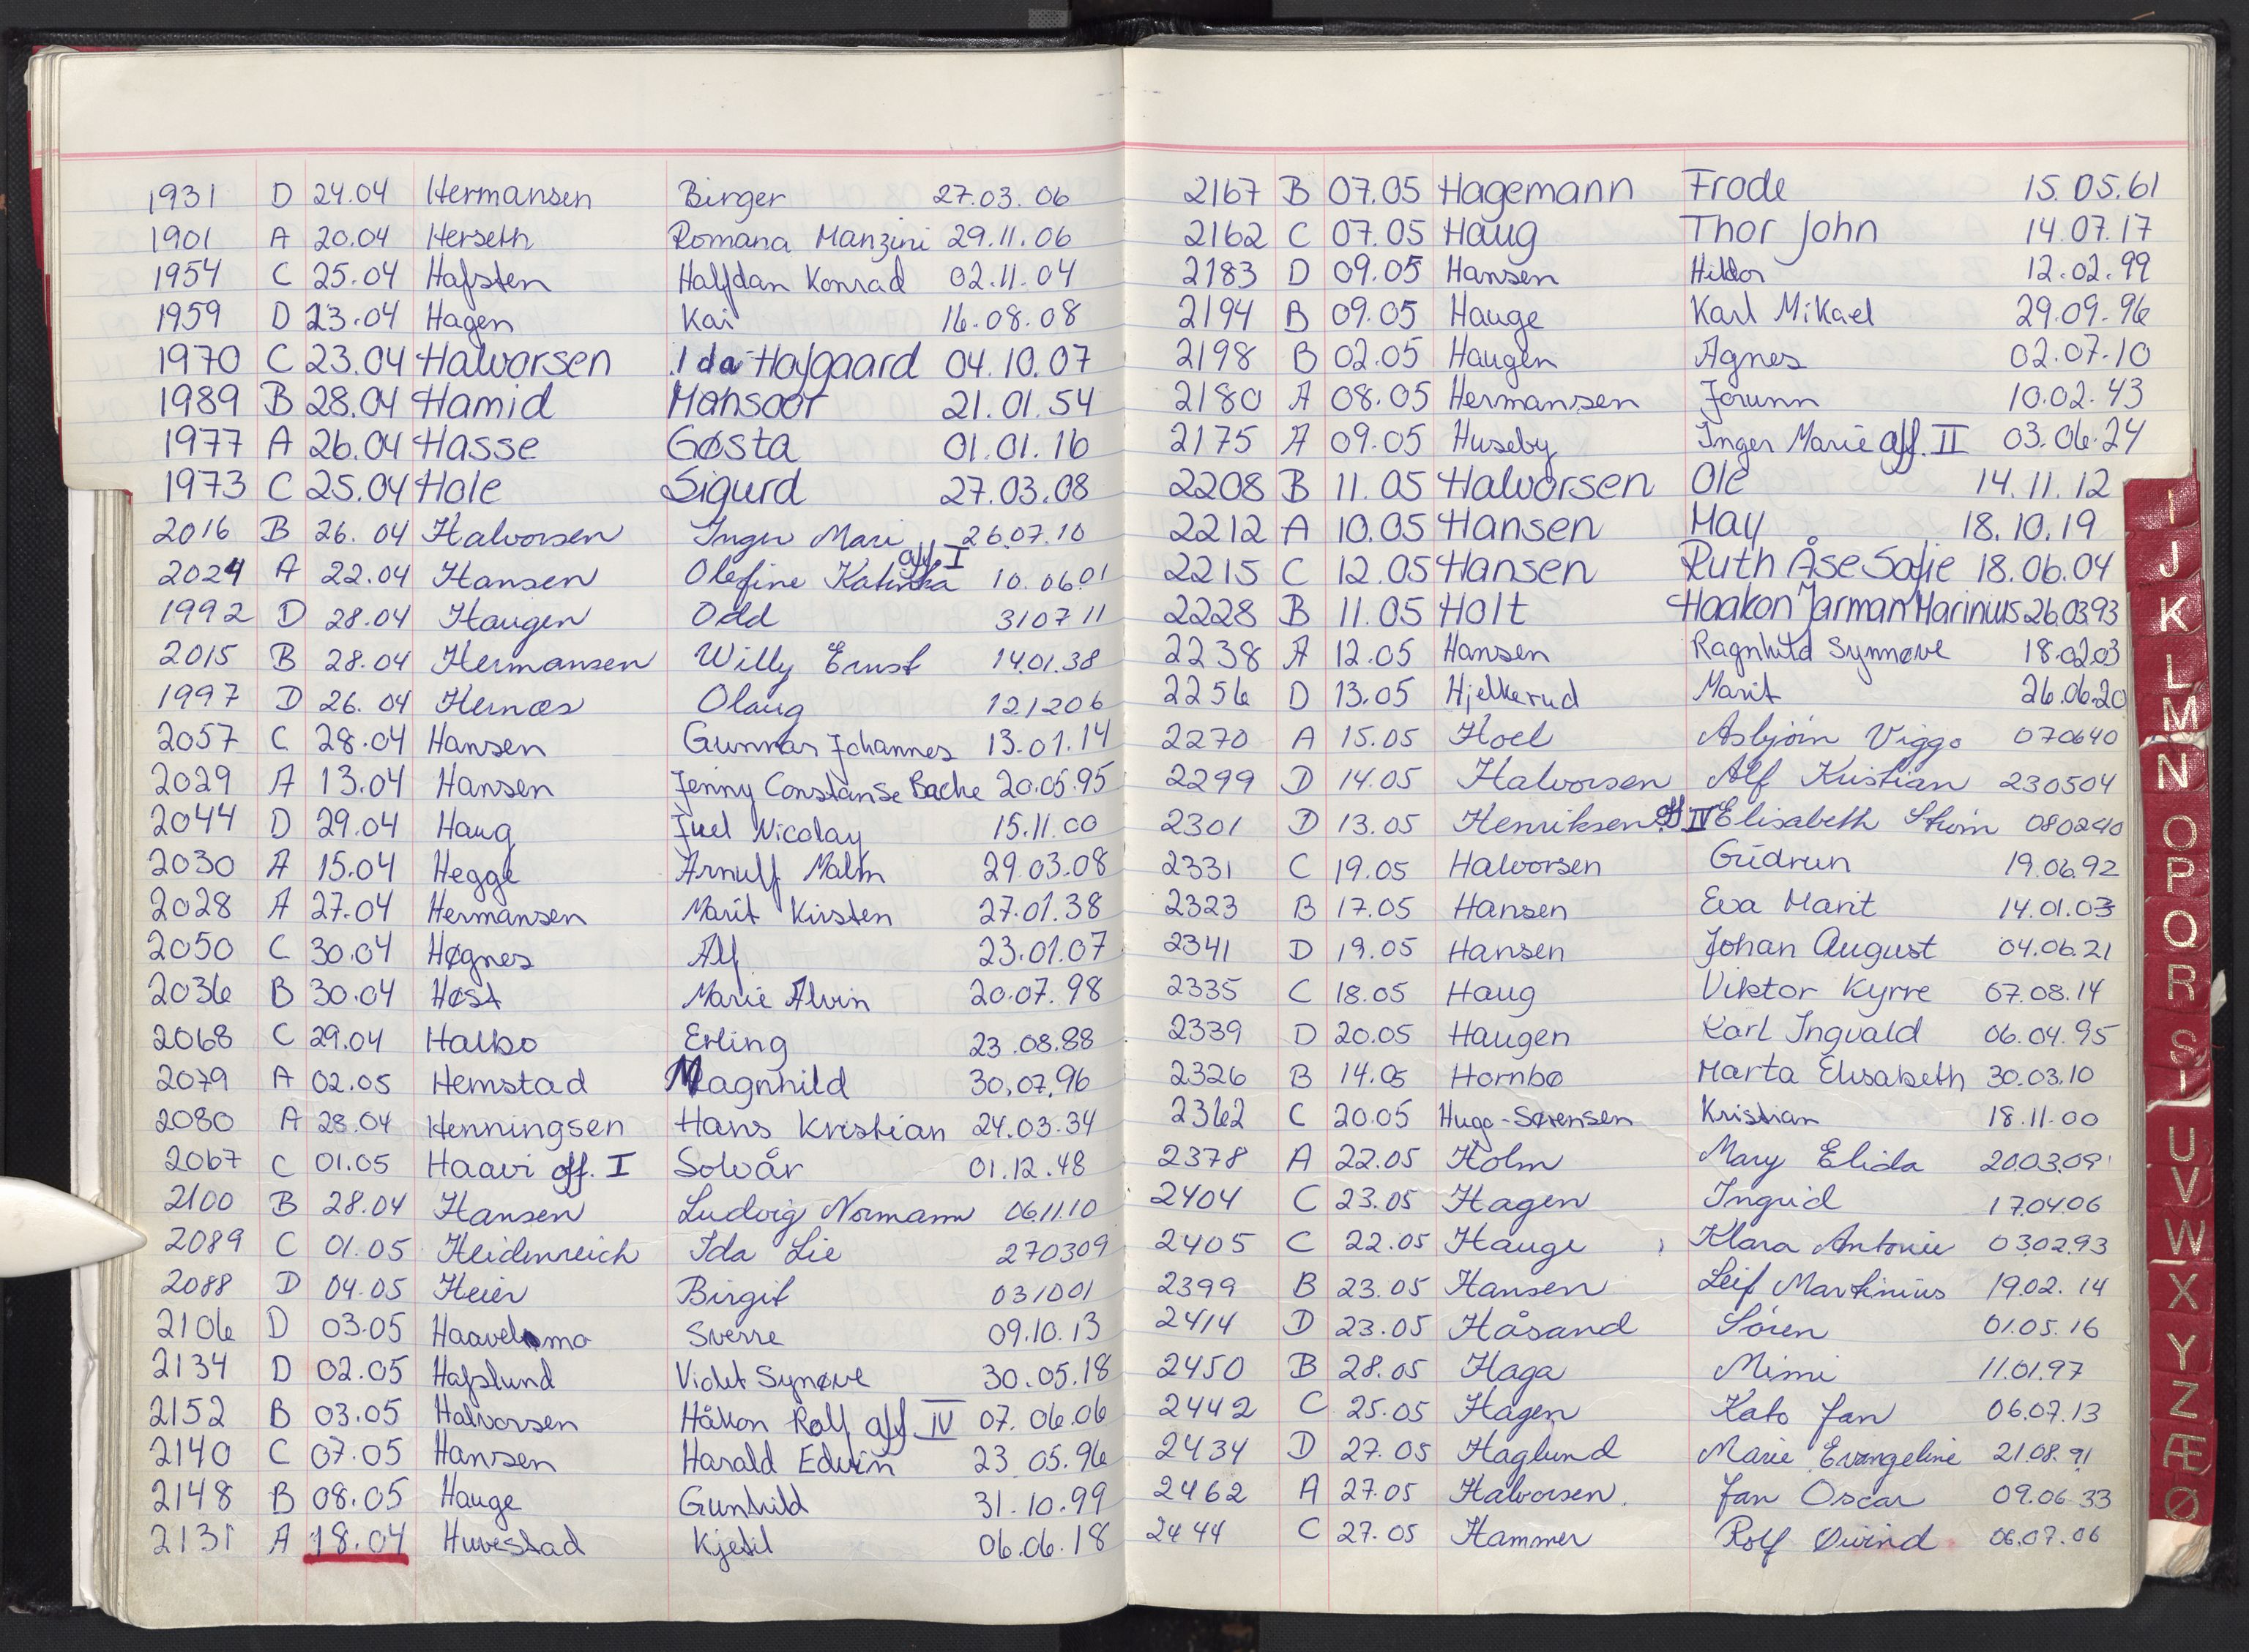 1931 D 24.04 Hermansen Birger 27.03.06
1901 A 20.04 Herseth Romana Manzini 29.11.06
1954 C 25.04 Hafsten Halfdan Konrad 02.11.04
1959 D 23.04 Hagen Kai 16.08.08
1970 C 23.04 Halvorsen Ida Hofgaard 04.10.07
1989 B 28.04 Hamid Mansoor 21.01.54
1977 A 26.04 Hasse Gøsta 01.01.16
1973 C 25.04 Hole Sigurd 27.03.08
2016 B 26.04 Halvorsen Inger Mari 26.07.10
2024 A 22.04 Hansen Olefine Katinka off I 10.06.01
1992 D 28.04 Haugen Odd 310711
2015 B 28.04 Hermansen Willy Ernst 14.01.38
1997 D 26.04 Hernæs Olaug 121206
2057 C 28.04 Hansen Gunnar Johannes 13.01.14
2029 A 13.04 Hansen Jenny Constanse Bache 20.05.95
2044 D 29.04 Haug Juel Nicolay 15.11.00
2030 A 15.04 Hegge Arnulf Malm 29.03.08
2028 A 27.04 Hermansen Marit Kirsten 27.01.38
2050 C 30.04 Høgnes Alf 23.01.07
2036 B 30.04 Høst Marie Alvin 20.07.98
2068 C 29.04 Halbo Erling 23.08.88
2079 A 02.05 Hemstad Magnhild 30.07.96
2080 A 28.04 Henningsen Hans Kristian 24.03.34
2067 C 01.05 Haavi off. I Solvår 01.12.48
2100 B 28.04 Hansen Ludvig Normann 06.11.10
2089 C 01.05 Heidenreich Ida Lie 270309
2088 D 04.05 Heier Birgit 031001
2106 D 03.05 Haavelmo Sverre 09.10.13
2134 D 02.05 Hafslund Violet Synøve 30.05.18
2152 B 03.05 Halvorsen Håkon Rolf off IV 07.06.06
2140 C 07.05 Hansen Harald Edvin 23.05.96
2148 B 08.05 Hauge Gunhild 31.10.99
2131 A 18.04 Huvestad Kjetil 06.06.18
2167 B 07.05 Hagemann Frode 15.05.61
2162 C 07.05 Haug Thor John 14.07.17
2183 D 09.05 Hansen 12.02.99
2194 B 09.05 Hauge Karl Mikael 29.09.96
2198 B 02.05 Haugen Agnes 02.07.10
2180 A 08.05 Hermansen Jorunn 10.02.43
2175 A 09.05 Huseby Inger Marie off. II 03.06.24
2208 B 11.05 Halvorsen Ole 14.11.12
2212 A 10.05 Hansen May 18.10.19
2215 C 12.05 Hansen Ruth Åse Sofie 18.06.04
2228 B 11.05 Holt Haakon Jarman Marinius 26.03.93
2238 A 12.05 Hansen Ragnhild Synnøve 18.02.03
2256 D 13.05 Hjelkerud Marit 26.06.20
2270 A 15.05 Hoel Asbjørn Viggo 070640
2299 D 14.05 Halvorsen Alf Kristian 230504
2301 D 13.05 Henriksen off IV Elisabeth Strøm 080240
2331 C 19.05 Halvorsen Gudrun 19.06.92
2323 B 17.05 Hansen Eva Marit 14.01.03
2341 D 19.05 Hansen Johan August 04.06.21
2335 C 18.05 Haug Viktor Kyrre 07.08.14
2339 D 20.05 Haugen Karl Ingvald 06.04.95
2326 B 14.05 Hornbø Marta Elisabeth 30.03.10
2362 C 20.05 Hugo-Sørensen Kristian 18.11.00
2378 A 22.05 Holm Mary Elida 20.03.09
2404 C 23.05 Hagen Ingrid 17.04.06
2405 C 22.05 Hauge Klara Antonie 03.02.93
2399 B 23.05 Hansen Leif Martinius 19.02.14
2414 D 23.05 Håsand Søren 01.05.16
2450 B 28.05 Haga Mimi 11.01.97
2442 C 25.05 Hagen Kato Jan 06.07.13
2434 D 27.05 Haglund Marie Evangeline 21.08.91
2462 A 27.05 Halvorsen Jan Oscar 09.06.33
2444 C 27.05 Hammer Rolf Øivind 06.07.06
I
J
K
L
M
N
O
P
Q
R
S
U
V
W
X
Y
Z
Æ
Ø